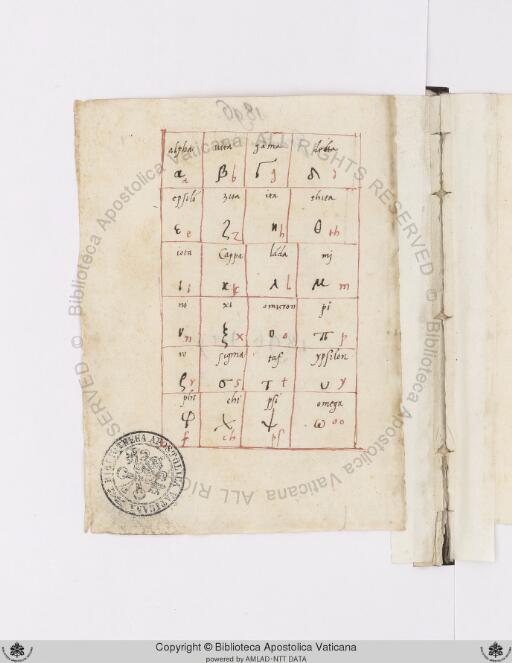 1896
alpha uita gama delta
α a β b γ g δ d
epsilo zita ita thita
ε e ζ z η h θ th
iota Cappa lãda mj
ι i κ k λ l μ m
no xi omicron pi
ν n ξ x ο o π p
ro segma taf ypsilon
ρ r σ s τ t υ y
phi chi psi omega
φ f χ ch ψ ps ω oo
BIBLIOTHECA APOSTOLICA VATICANA
© Biblioteca Apostolica Vaticana ALL RIGHTS RESERVED
Copyright © Biblioteca Apostolica Vaticana
powered by AMLAD-NTT DATA